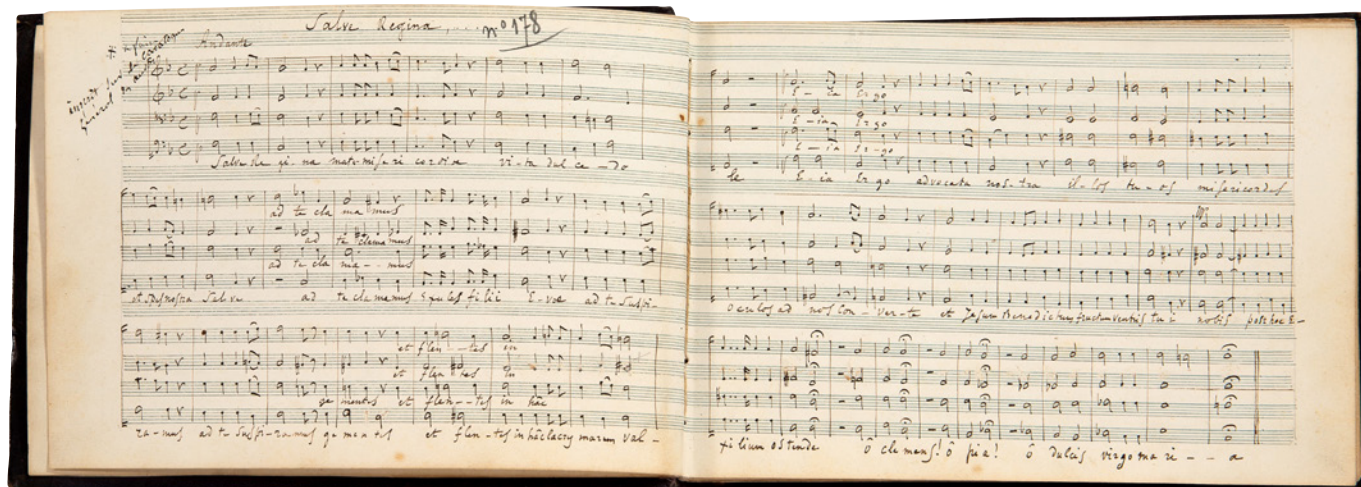 Salve Regina .... nº 178
Andante
Salve Re gi-na mater mise ri cordiæ vi-ta dul ce-do
ad te cla ma mus
ad te clama mus
ad te cla ma-- mus
et spes nostra Salve ad te cla mamus Exules filii E-væ ad te Suspi-
et flen--tes in
et flen tes in
ge mentes et flen--tes in hâc
ra-mus ad te Suspi-ramus ge men tes et flen-tes in hâc lacrymarum val-
E-ia Ergo
E-ia Ergo
E-ia Er-go
le E-ia Ergo advocata nos-tra il-los tu-os misericordes
oculos ad nos Con-ver-te et Jesum Benedictum fructum ventris tu i nobis post hoc E-
xilium ostende Ô cle mens! ô pi a! ô dulcis virgo ma ri--a